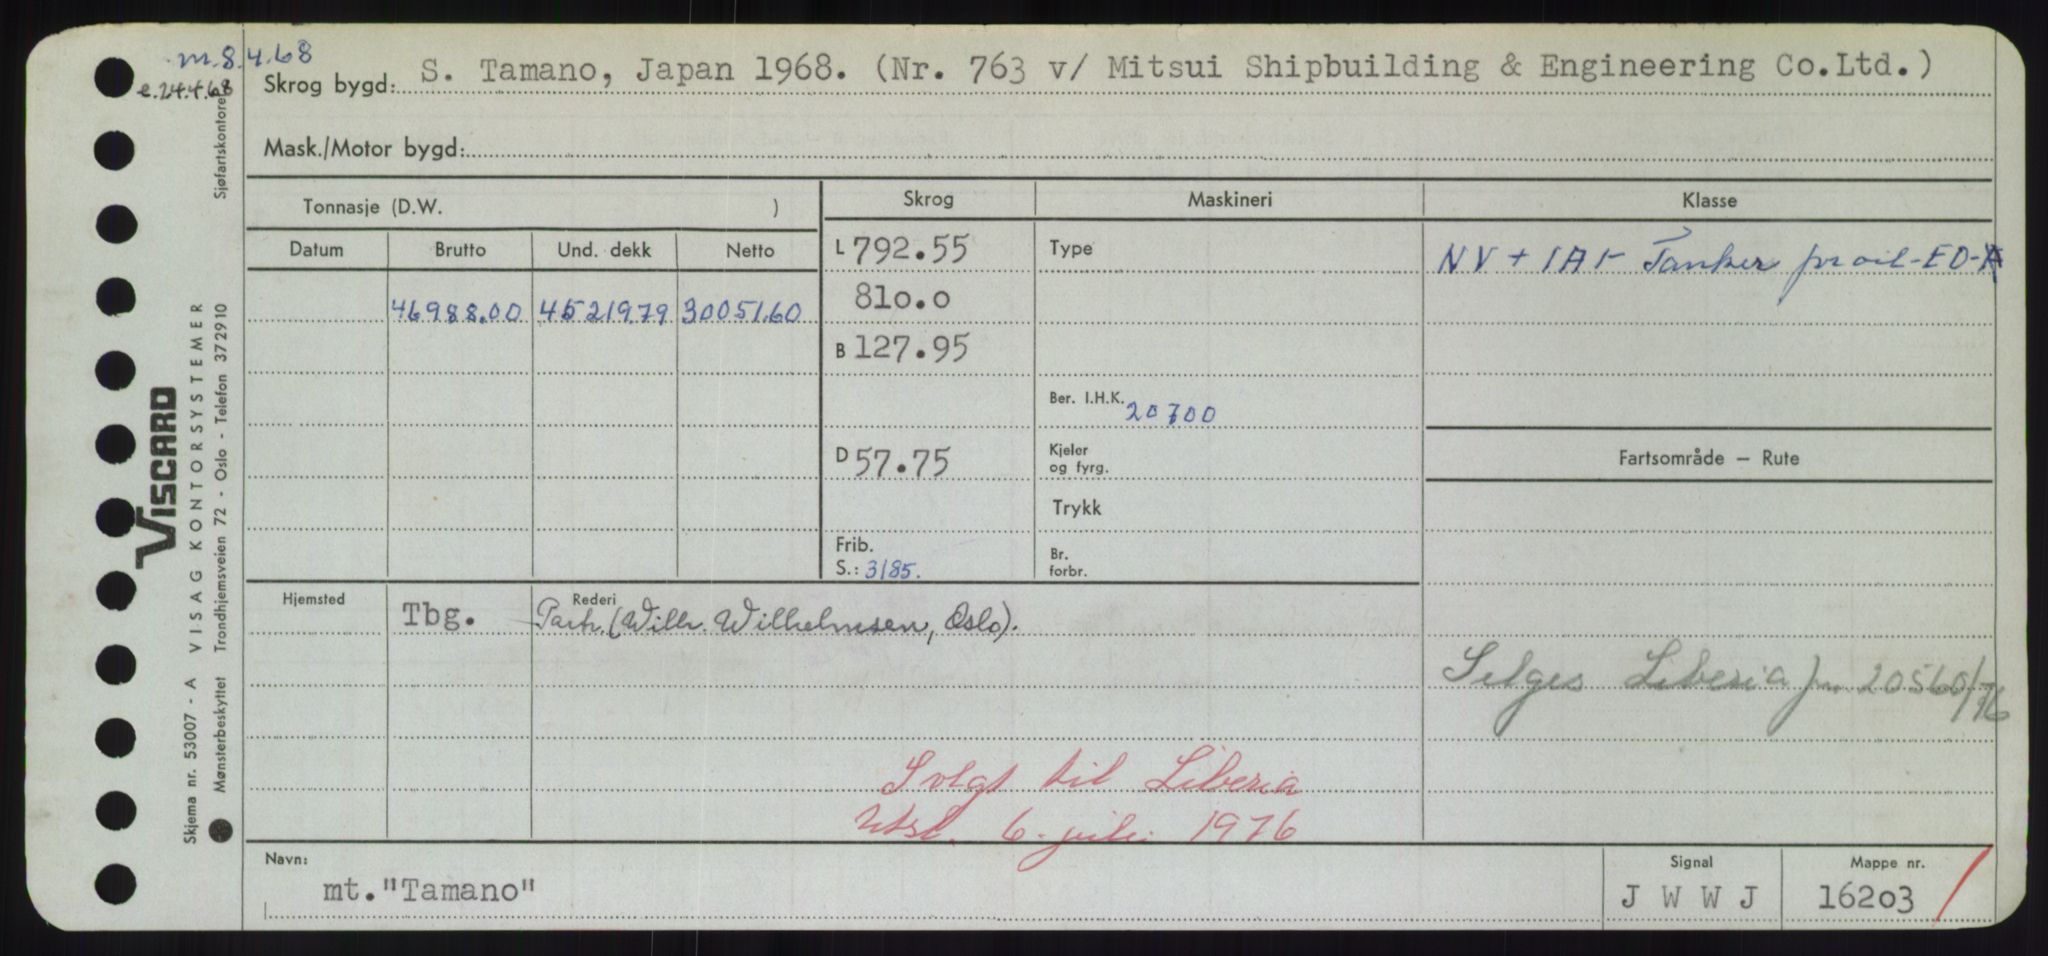 m. 8.4.68
e. 24.4.68
Skrog bygd: S. Tamano, Japan 1968. (Nr. 763 v/ Mitsui Shipbuilding & Engineering Co.Ltd.)
Mask./Motor bygd:
Tonnasje (D.W. )
Skrog Maskineri Klasse
Datum Brutto Und. dekk Netto
46988.00 45219.79 30051.60
L 792.55
810.0
B 127.95
D 57.75
Frib.
S.: 3185.
Type
Ber. I.H.K. 20700
Kjeler
og fyrg.
Trykk
Br.
forbr.
NV + 1A1- Tanker for oil-EO-
Fartsområde — Rute
Selges Liberia 20560/76
Hjemsted Tbg. Rederi
Partr. (Wilh. Wilhelmsen, Oslo).
Solgt til Liberia
Utsl. 6. juli 1976
Navn:
mt."Tamano"
Signal
J W W J
Mappe nr.
16203
VISCARD
Skjema nr. 53007 - A VISAG KONTORSYSTEMER
Mønsterbeskyttet Trondhjemsveien 72 - Oslo - Telefon 372910
Sjøfartskontoret